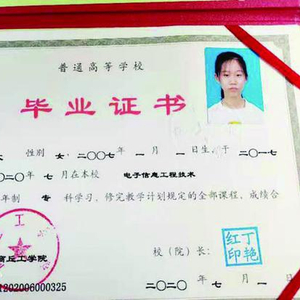 普通高等学校
毕业证书
性别 女,二〇〇七年 一 月 一 日生,于 二〇一七
二〇二〇年 七 月在本校 电子信息工程技术
年制 专 科学习,修完教学计划规定的全部课程,成绩合
工
商丘工学院
校(院)长:
红丁印艳
1202006000325
二〇二〇年 七 月